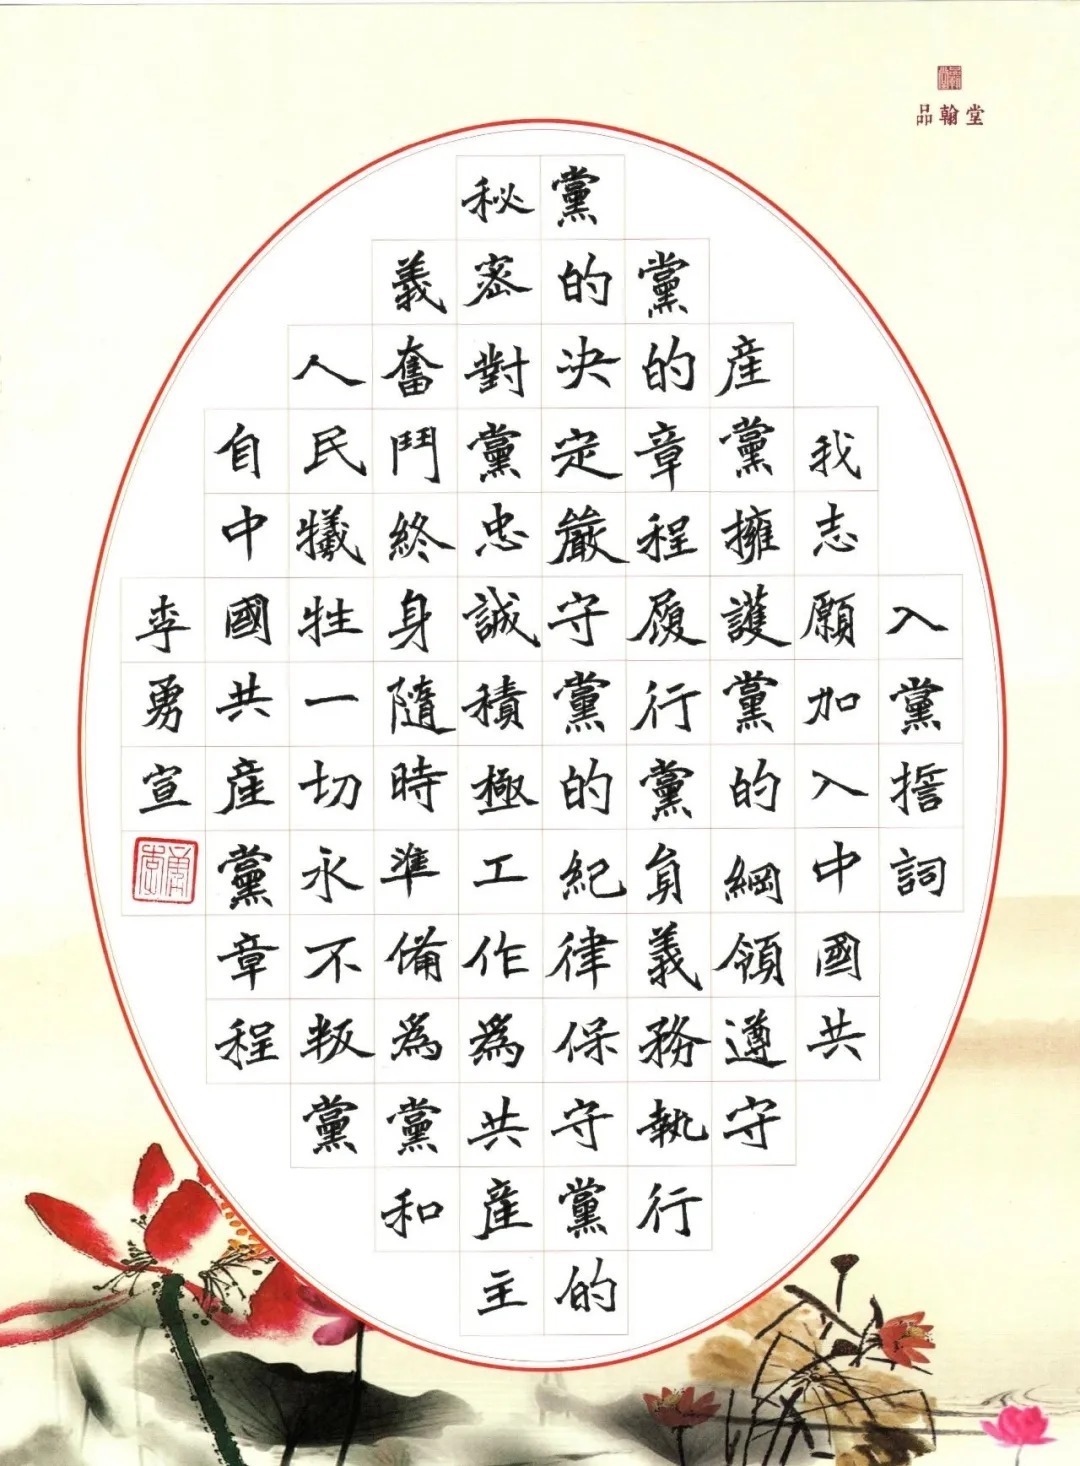 品翰堂
入黨誓詞
我志願加入中國共
産黨擁護黨的綱領遵守
黨的章程履行黨員義務執行
黨的决定嚴守黨的紀律保守黨的
秘密對黨忠誠積極工作為共産主
義奮鬥終身隨時準備為黨和
人民犧牲一切永不叛黨
自中國共産黨章程
李勇宣